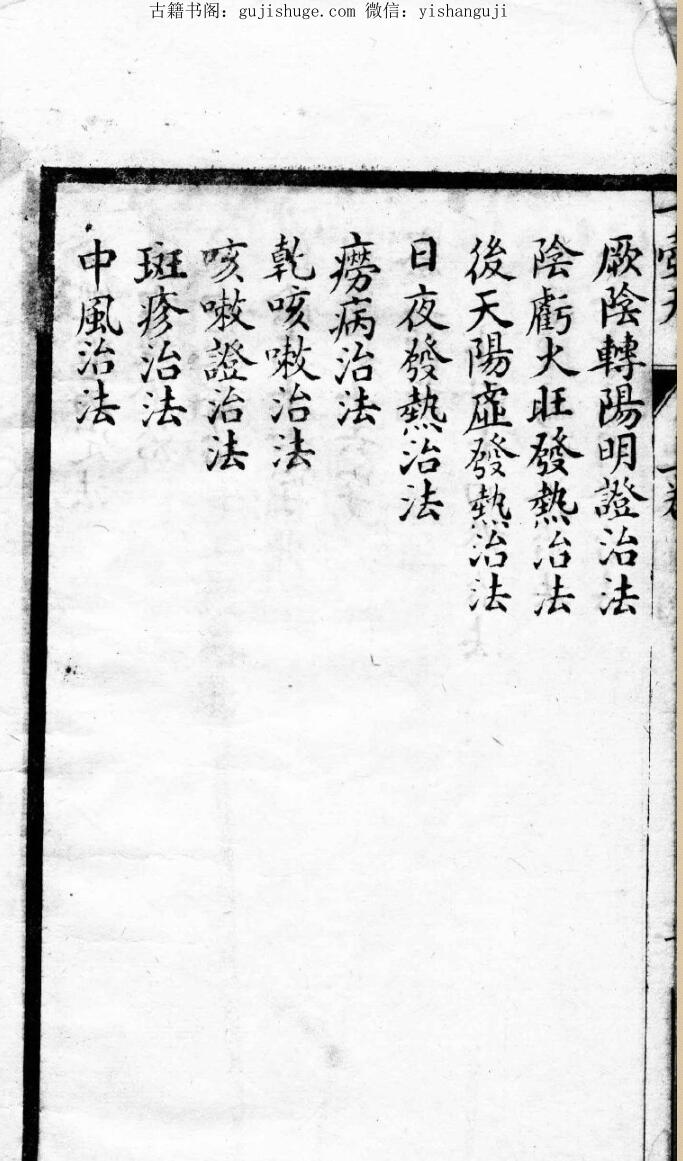 古籍书阁：gujishuge.com 微信：yishanguji
厥陰轉陽明證治法
陰虧火旺發熱治法
後天陽虛發熱治法
日夜發熱治法
癆病治法
乾咳嗽治法
咳嗽證治法
斑疹治法
中風治法